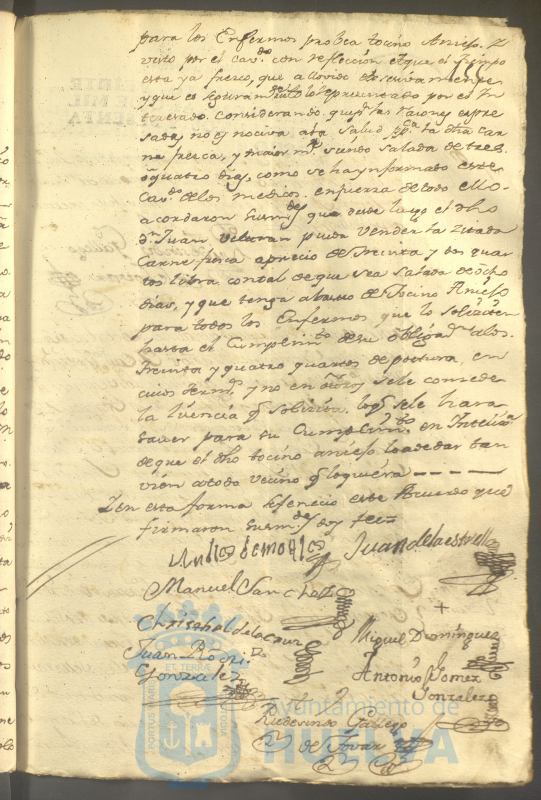 para los Enfermos probea tocino Aniejo. Y
visto por el cav.do con reflección a que el tiempo
esta ya fresco, que a llovido
y que es lo representado por el In
teresado. Considerando. que p.r las raxones expre
sadas, no es nociva a la salud pp.ca la dha car
ne fresca, y maior m.te siendo salada de tres
o quatro dias, como se ha ynformado este
Cav.do de los medicos. en fuerza de todo ello
acordaron sus m.des que desde luego el dho
d.n Juan Velaran pueda vender la zitada
Carne fresca a precio de treinta y dos quar
tos libra. con tal de que sea salada de ocho
dias, y que tenga abasto de tocino Aniejo
para todos los Enfermos que lo soliciten
hasta el Cumplim.to de su oblig.n a los
treinta y quatro quartos de postura, en
cuios term.s y no en otros se le concede
la licencia q.e solicita. lo q.e se le hara
saver para su Cumplim.to en Intelix.a
de que el dho tocino aniejo lo a de dar tan
vien a todo vecino q.e lo quiera
Y en esta forma se fenecio este Acuerdo que
firmaron sus m.des doy fee=
Juan de la estrella
Manuel Sanchez
Christobal de la Cruz
Miguel Dominguez
Juan Rodri.z
Gonzalez
Antonio Gomez
Gonzalez
Rudesindo Gallego
de Tovar
PORTUS MARIS
ET TERRÆ
Ayuntamiento de
HUELVA